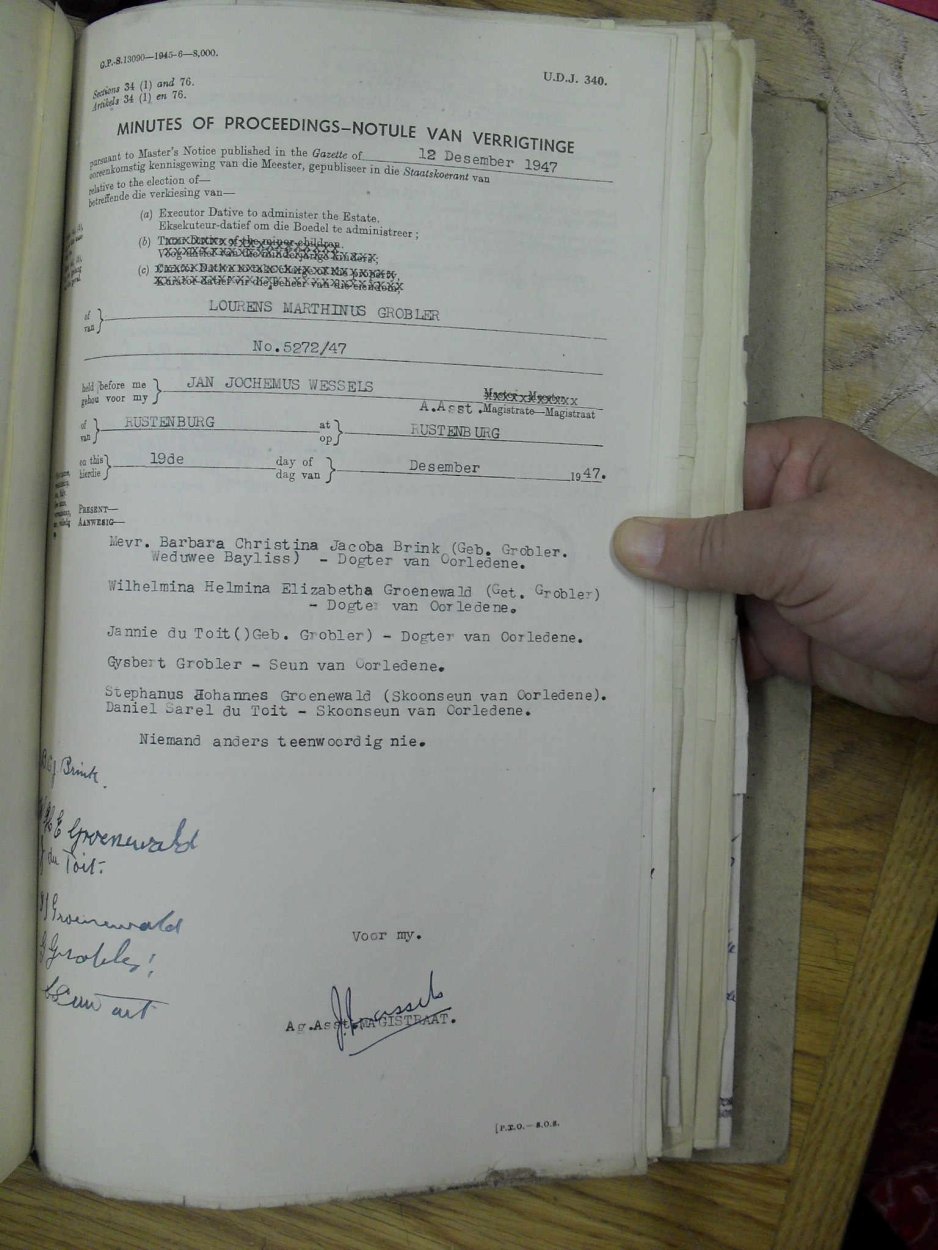 G.P.-S.13090—1945-6—8,000.
U.D.J. 340.
Sections 34 (1) and 76.
Artikels 34 (1) en 76.
MINUTES OF PROCEEDINGS—NOTULE VAN VERRIGTINGE
pursuant to Master's Notice published in the Gazette of 12 Desember 1947
ooreenkomstig kennisgewing van die Meester, gepubliseer in die Staatskoerant van
relative to the election of—
betreffende die verkiesing van—
(a) Executor Dative to administer the Estate.
Eksekuteur-datief om die Boedel te administreer ;
(b) of the minor children.
van die minderjarige kinders;
(c)
Kurator datief vir die beheer van die eiendom;
of
van } LOURENS MARTHINUS GROBLER
No.5272/47
held before me
gehou voor my } JAN JOCHEMUS WESSELS
A.Asst. Magistrate—Magistraat
of
van } RUSTENBURG at
op } RUSTENBURG
on this
hierdie } 19de day of
dag van } Desember 1947.
PRESENT—
AANWESIG—
Mevr. Barbara Christina Jacoba Brink (Geb. Grobler.
Weduwee Bayliss) - Dogter van Oorledene.
Wilhelmina Helmina Elizabetha Groenewald (Get. Grobler)
- Dogter van Oorledene.
Jannie du Toit()Geb. Grobler) - Dogter van Oorledene.
Gysbert Grobler - Seun van Oorledene.
Stephanus Johannes Groenewald (Skoonseun van Oorledene).
Daniel Sarel du Toit - Skoonseun van Oorledene.
Niemand anders teenwoordig nie.
Brink.
H E Groenewald
du Toit.
J Groenewald
G Grobler
Voor my.
J.J. Wessels
Ag.Asst.MAGISTRAAT.
[P.T.O.—S.O.S.